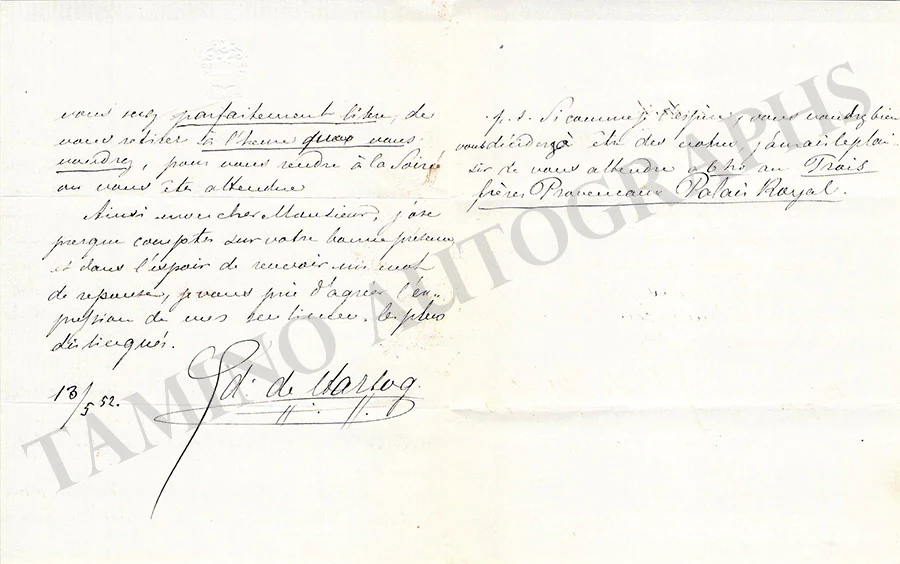 vous serez parfaitement libre, de
vous retirer à l'heure que vous
voudrez, pour vous rendre à la Soirée
ou vous êtes attendu
Ainsi mon cher Monsieur, j'ose
presque compter sur votre bonne présence
et dans l'espoir de recevoir un mot
de reponse, je vous prie d'agréer l'ex-
pression de mes sentimen. les plus
distingués.
13/5 52.
Ed. de Hartog.
p.s. Si comme j'espère, vous voudrez bien
vous décider à être des notres, j'aurais le plai-
sir de vous attendre à 6 h½ au Trois
frères Provenceaux Palais Royal.
TAMINO AUTOGRAPHS